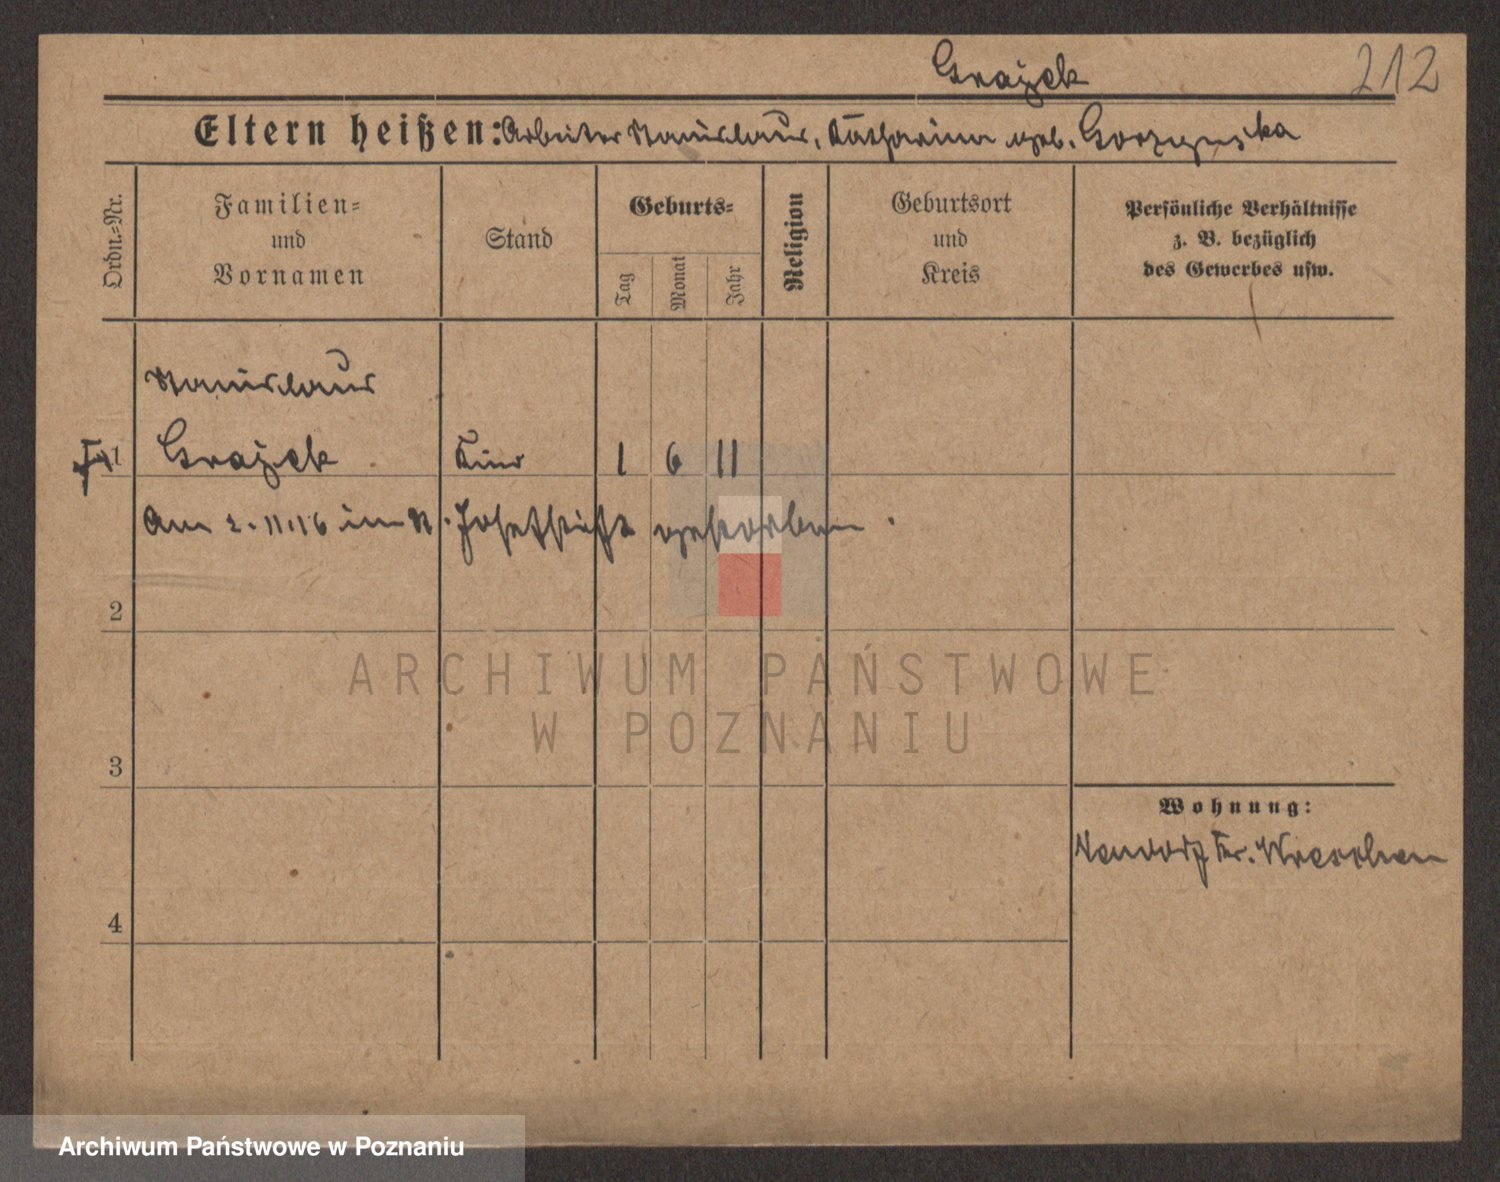 Grajek
212
Eltern heißen: Arbeiter Stanislaus, Katharina geb.
Ordn.-Nr.
Familien-
und
Vornamen
Stand
Geburts-
Tag
Monat
Jahr
Religion
Geburtsort
und
Kreis
Persönliche Verhältnisse
z. B. bezüglich
des Gewerbes usw.
Stanislaus
1 Grajek Kind 1 6 11
Am 2.11.16 im St. Josefstift gestorben.
2
3
4
Wohnung:
Neudorf Kr. Wreschen
ARCHIWUM PAŃSTWOWE
W POZNANIU
Archiwum Państwowe w Poznaniu